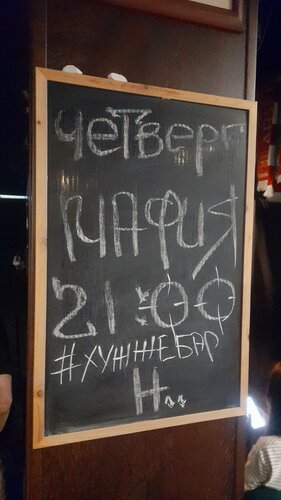 Четверг
МАФИЯ
21:00
#ХУЖЖЕБАР
Н..